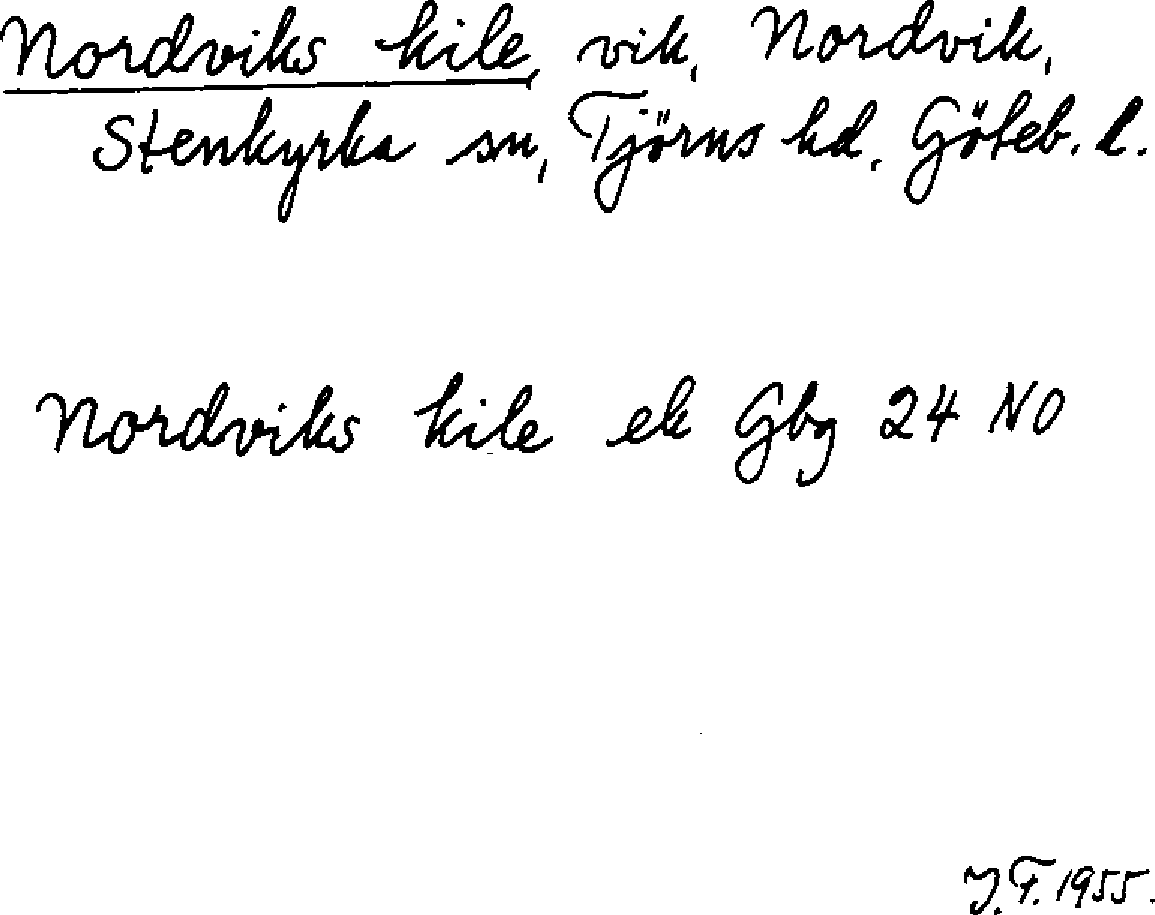 Nordviks kile, vik, Nordvik,
Stenkyrka sn, Tjörns hd, Göteb. l.
Nordviks kile ek Gbg 24 NO
J.F. 1955.